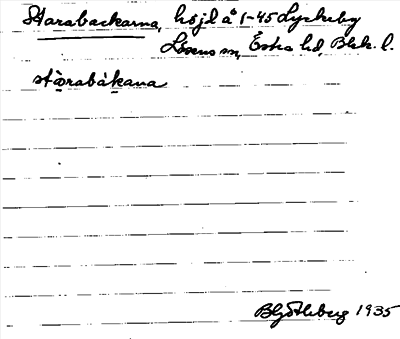 Starabackarna, höjd å 1-45 Lyckeby
Lösens sn, Östra hd, Blek. l.
stārabákana
1935